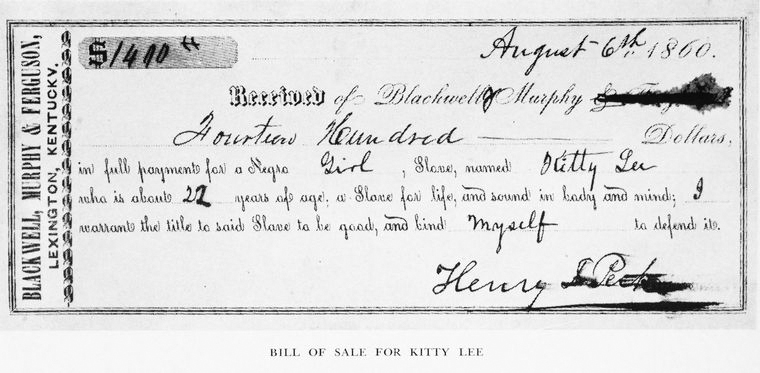 BLACKWELL, MURPHY & FERGUSON,
LEXINGTON, KENTUCKY.
$1400
August 6th 1860.
Received of Blackwell & Murphy
Fourteen Hundred Dollars,
in full payment for a Negro Girl, Slave, named Kitty Lee
who is about 22 years of age, a Slave for life, and sound in body and mind; I
warrant the title to said Slave to be good, and bind Myself to defend it.
Henry
BILL OF SALE FOR KITTY LEE